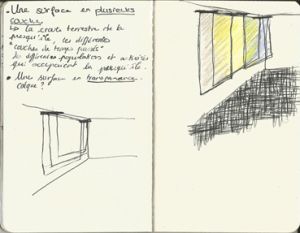 • Une surface en plusieurs
couche
↳ la croute terrestre de la
presqu'île les différentes
"couches de temps passés"
les différentes populations et activités
qui occupaient la presqu'île.
• Une surface en transparence.
calque ?